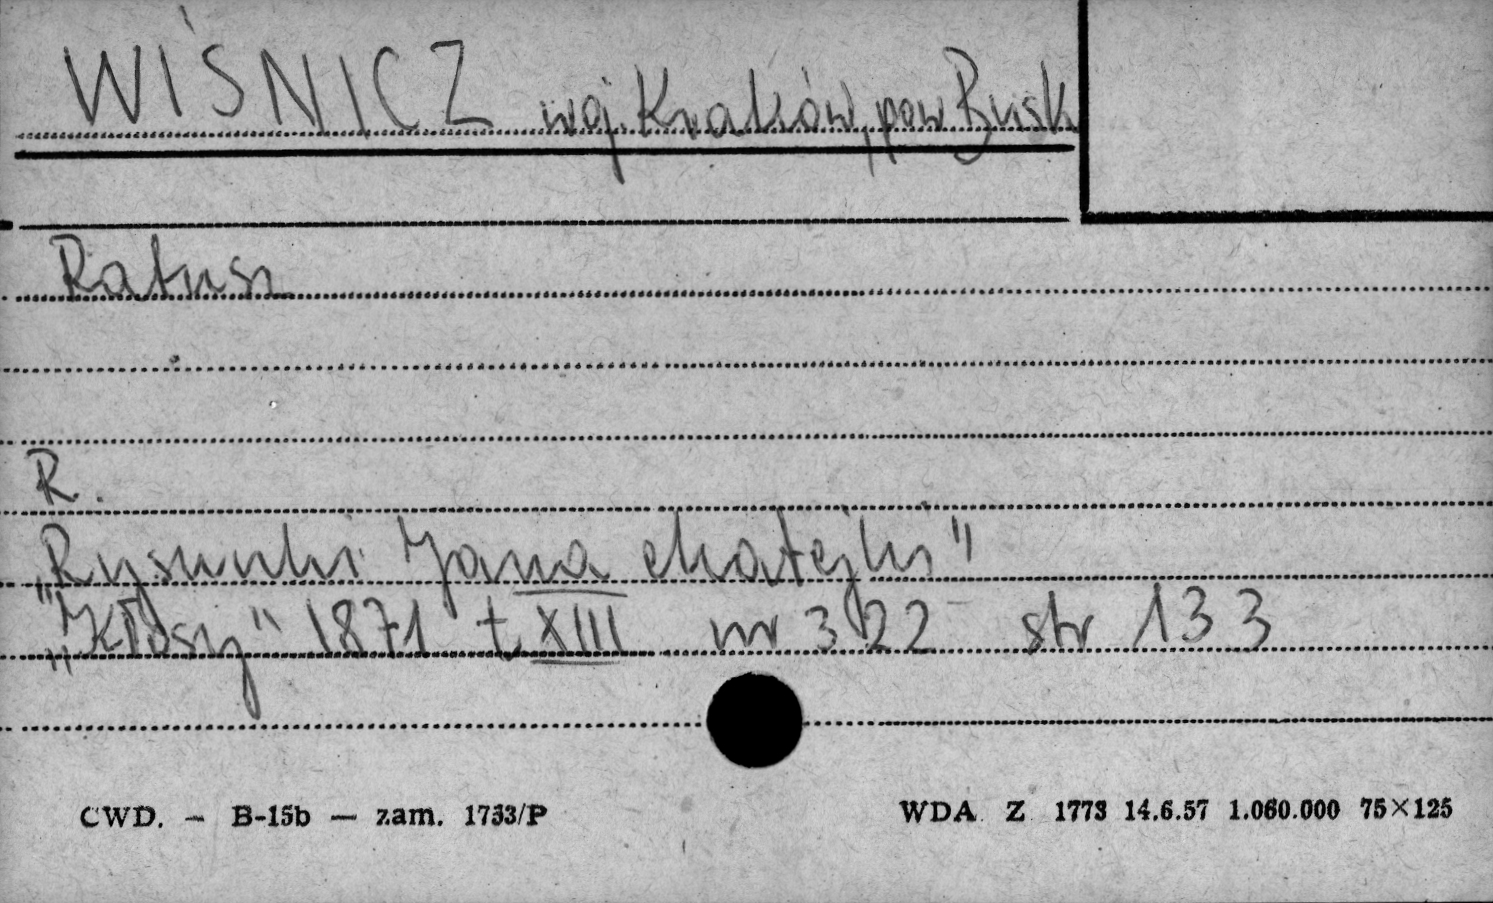 WIŚNICZ woj. Kraków, pow Busk
Ratusz
R.
„Rysunki Jana Matejki"
„Kłosy" 1871 t. XIII nr 322 str 133
CWD. — B-15b — zam. 1733/P
WDA Z 1773 14.6.57 1.060.000 75×125